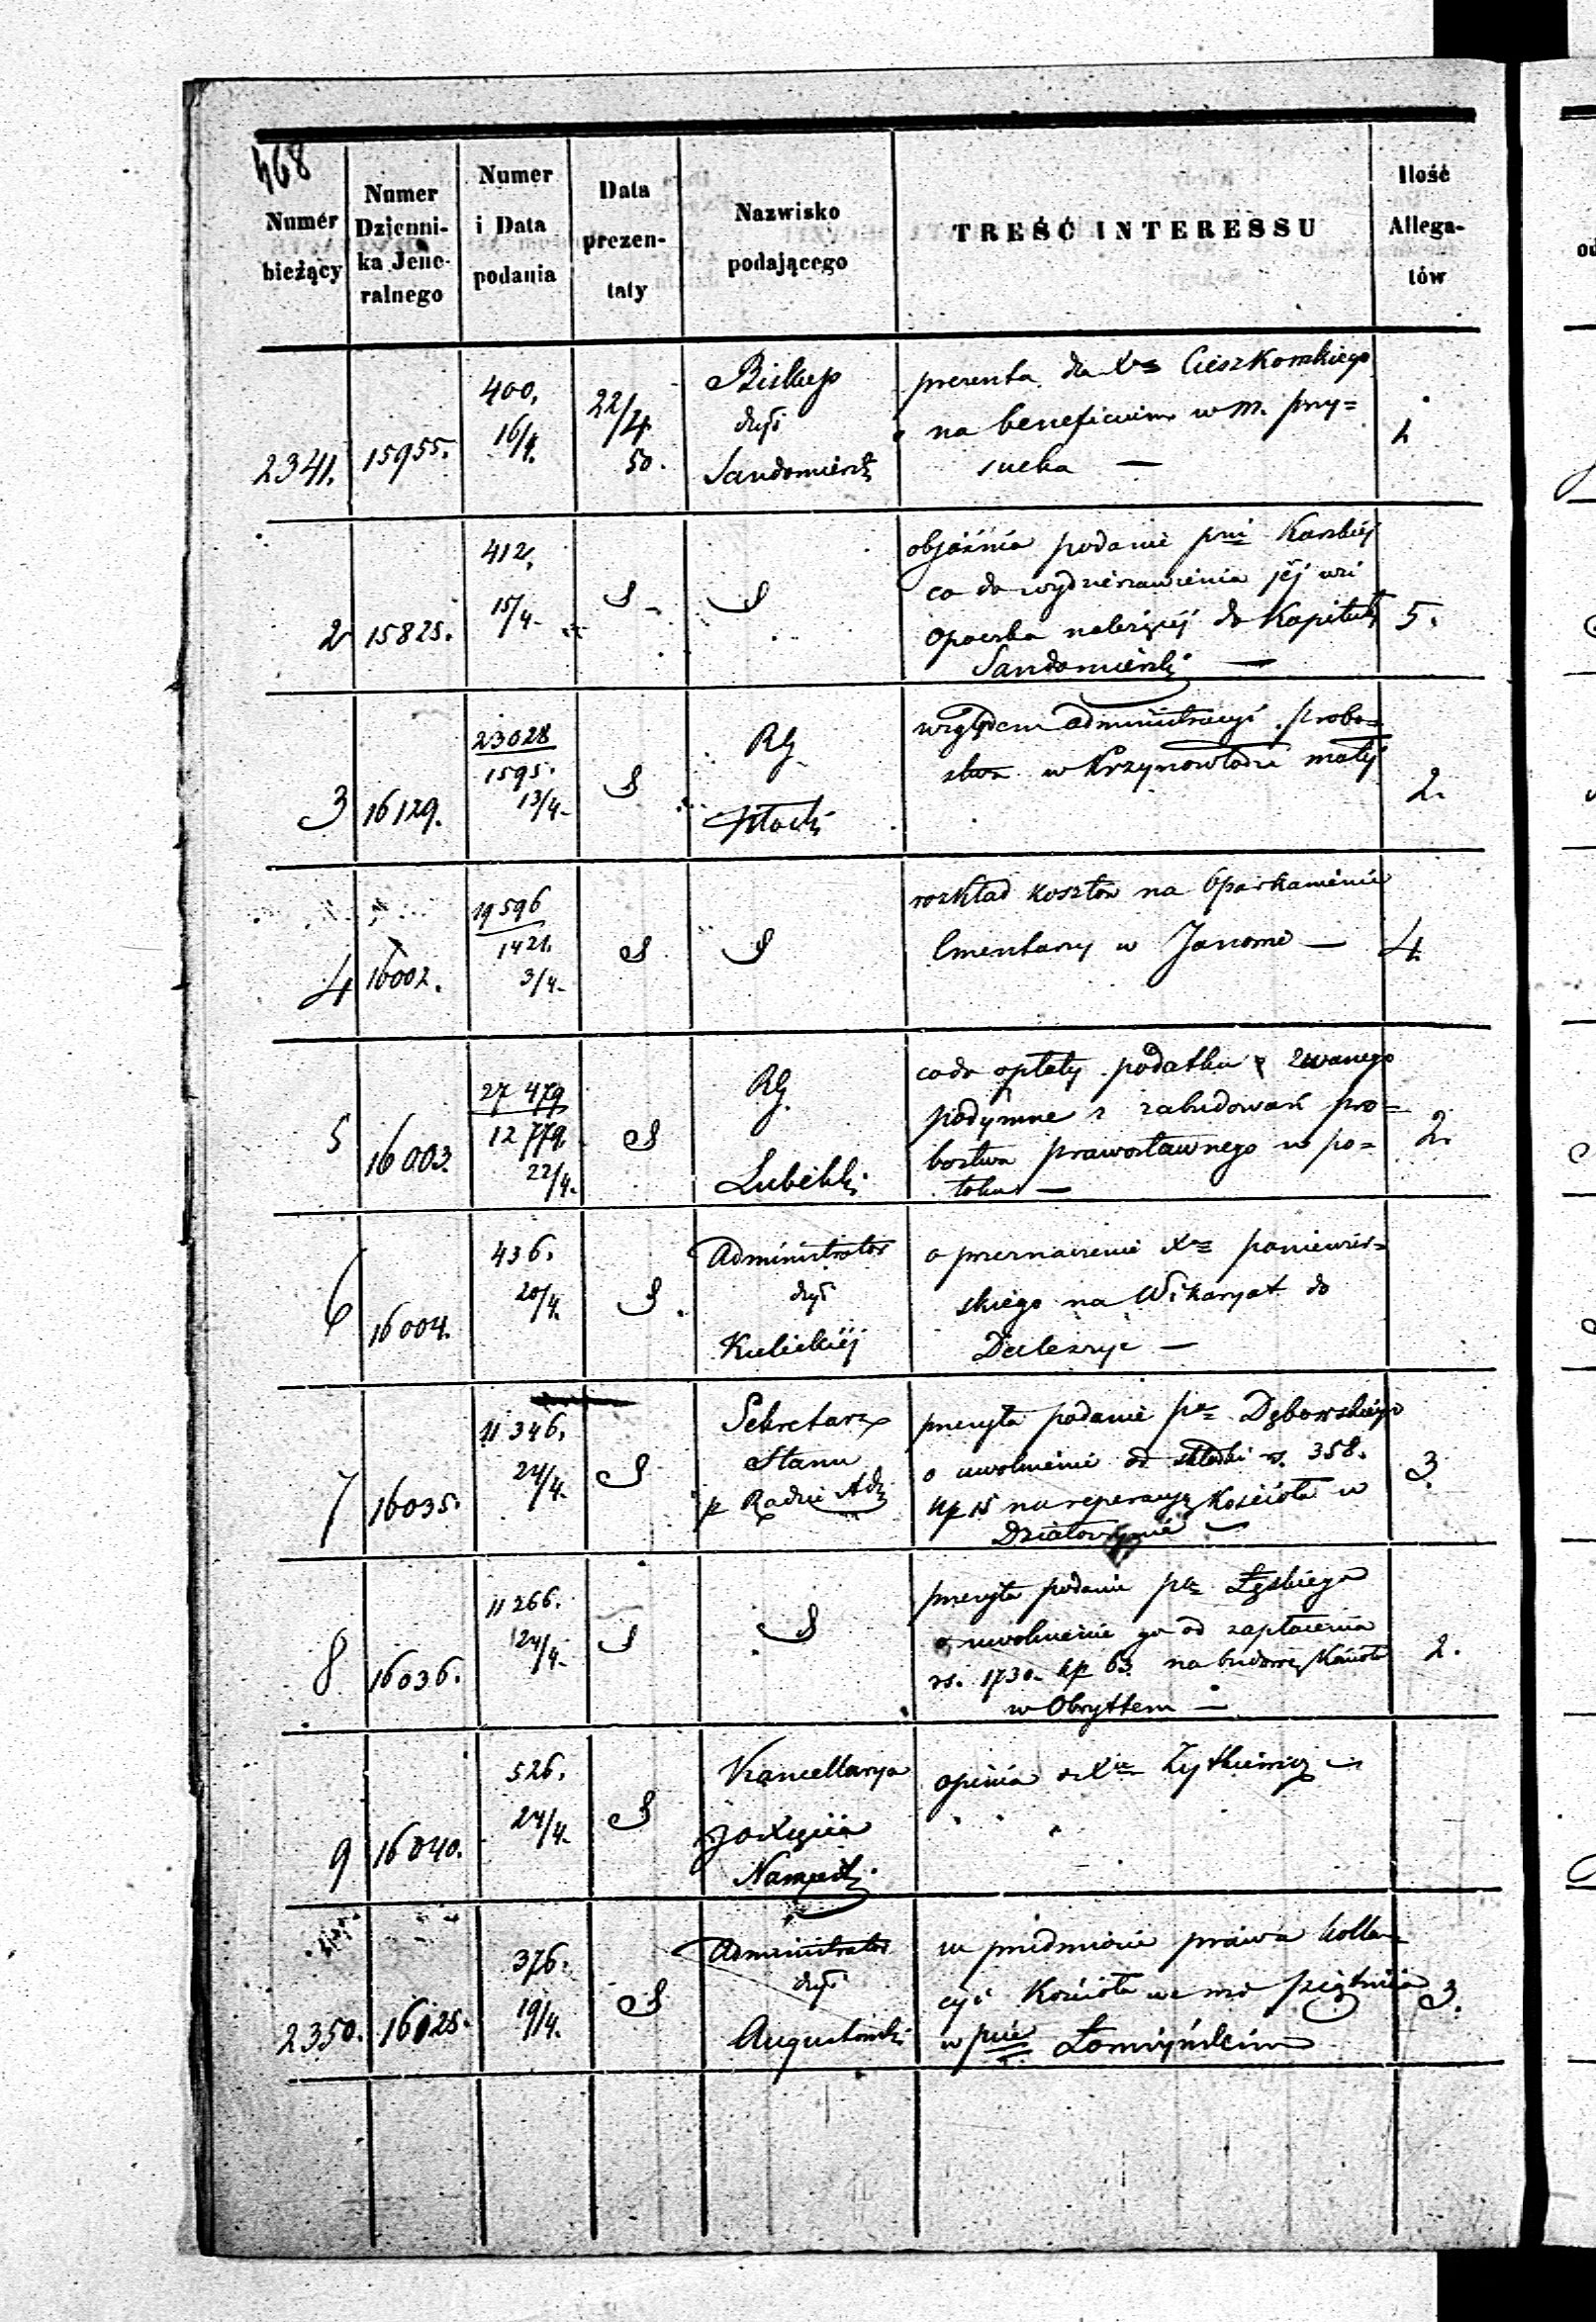 468
Numer bieżący
Numer Dzienni-
ka Jene-
ralnego
Numer
i Data
podania
Data
prezen-
taty
Nazwisko
podającego
TREŚĆ INTERESSU
Ilość
Allega-
tów
2341.
15955.
400.
16/4.
22/4
50.
Biskup
dyś
Sandomiersk
prezenta dla Xa Cieszkowskiego
na beneficium w m. przy=
sucha —
1
2
15825.
412.
15/4.
objaśnia podanie pni Karskiej
co do wydzierżawienia jéj wsi
Opoczka należącej do Kapituły
Sandomierski —
5.
3
16129.
23028
1595.
13/4.
RG
Płocki
względem administracyi probo=
stwa w Krzynowłodze małej
2.
4
16002.
19596
1421.
3/4.
rozkład kosztów na Oparkanienie
Cmentarzy w Janowie —
4
5
16003.
27 479
12 779.
22/4.
RG.
Lubelski
co do opłaty podatku zwanego
podymne z zabudowań pro=
bostwa prawosławnego w po=
toku —
2.
6
16004.
436.
20/4.
Administrator
dyś
Kieleckiéj
o przeznaczenie Xa
skiego na Wikaryat do
Daleszyc —
7
16035.
11 346.
24/4.
Sekretarz
Stanu
p Radzie Adm
przesyła podanie pa Dąbowskiego
o uwolnienie od składki rs. 358.
kp 15 na reperacyę Kościoła w
—
3.
8
16036.
11 266.
24/4.
przesyła podanie pa Łęskiego
o uwolnienie go od zapłacenia
rs. 1730. kp 63. na budowę Kościoła
w Obryttem —
2.
9
16040.
526.
24/4.
Kancellarya
JO Xięcia
Namiest
opinia o Xu Żytkiewicz —
2350.
16025.
376.
19/4.
Administrator
dyś
Augustowski
w przedmiocie prawa kolla=
cyi Kościoła we wsi piątnica
w pcie Łomżyńskim
3.